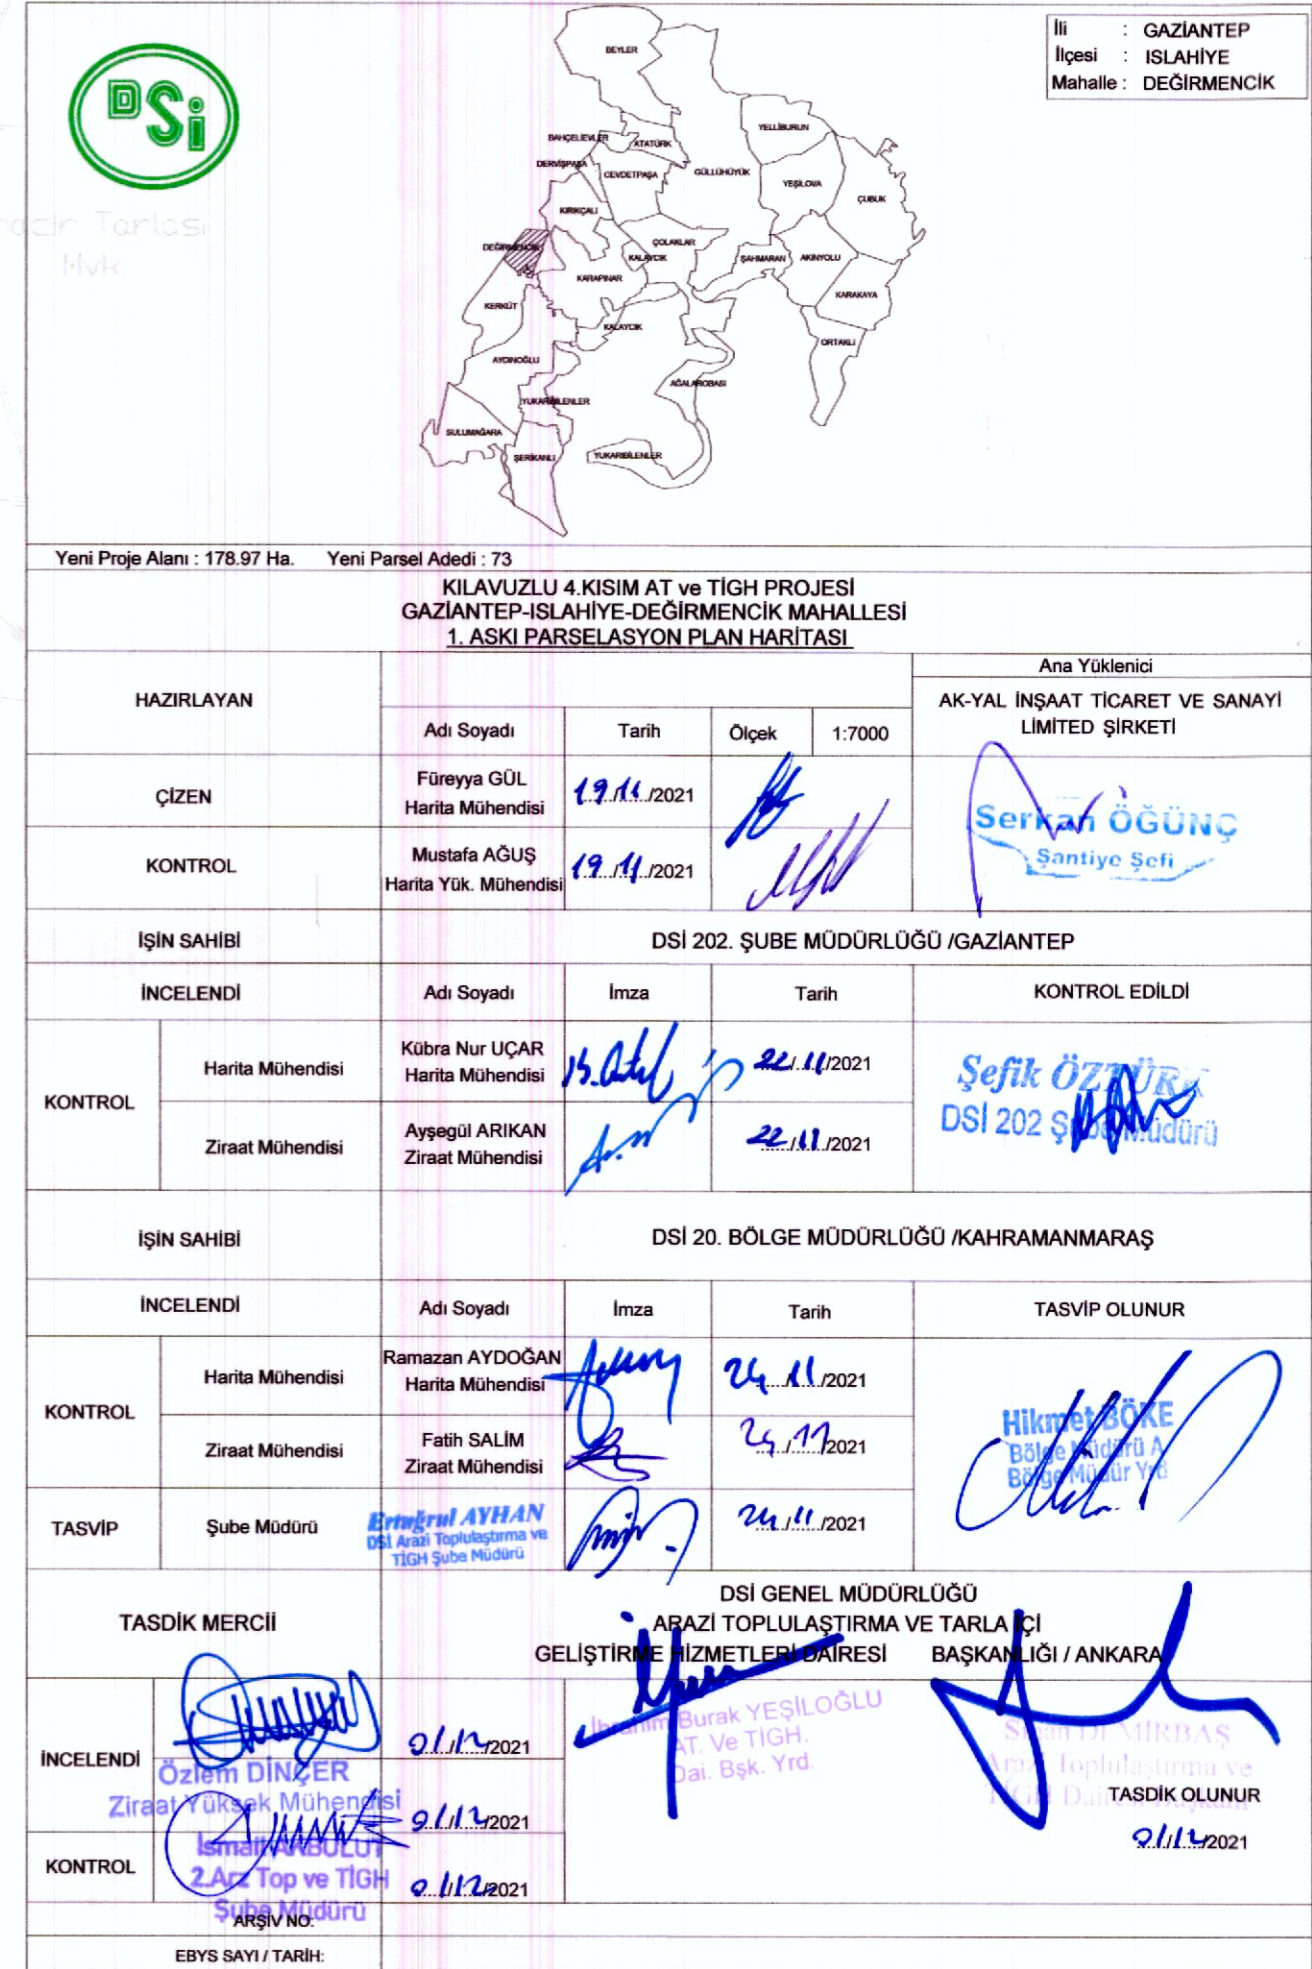 DSİ
İli : GAZİANTEP
İlçesi : ISLAHİYE
Mahalle : DEĞİRMENCİK
Tarlası
Mvk.
BEYLER
YELLİBURUN
BAHÇELİEVLER
ATATÜRK
DERVİŞPAŞA
CEVDETPAŞA
GÜLLÜHÜYÜK
YEŞİLOVA
ÇUBUK
KIRIKÇALI
DEĞİRMENCİK
ÇOLAKLAR
KALAYCIK
ŞAHMARAN
AKINYOLU
KARAPINAR
KARAKAYA
KERKÜT
KALAYCIK
ORTAKLI
AYDINOĞLU
AĞALAROBASI
YUKARIBİLENLER
SULUMAĞARA
ŞERİKANLI
YUKARIBİLENLER
Yeni Proje Alanı : 178.97 Ha. Yeni Parsel Adedi : 73
KILAVUZLU 4.KISIM AT ve TİGH PROJESİ
GAZİANTEP-ISLAHİYE-DEĞİRMENCİK MAHALLESİ
1. ASKI PARSELASYON PLAN HARİTASI
HAZIRLAYAN
Adı Soyadı
Tarih
Ölçek
1:7000
Ana Yüklenici
AK-YAL İNŞAAT TİCARET VE SANAYİ
LİMİTED ŞİRKETİ
ÇİZEN
Füreyya GÜL
Harita Mühendisi
19/11/2021
KONTROL
Mustafa AĞUŞ
Harita Yük. Mühendisi
19/11/2021
Serkan ÖĞÜNÇ
Şantiye Şefi
İŞİN SAHİBİ
DSİ 202. ŞUBE MÜDÜRLÜĞÜ /GAZİANTEP
İNCELENDİ
Adı Soyadı
İmza
Tarih
KONTROL EDİLDİ
KONTROL
Harita Mühendisi
Kübra Nur UÇAR
Harita Mühendisi
22/11/2021
Ziraat Mühendisi
Ayşegül ARIKAN
Ziraat Mühendisi
22/11/2021
Şefik ÖZTÜRK
DSİ 202 Şube Müdürü
İŞİN SAHİBİ
DSİ 20. BÖLGE MÜDÜRLÜĞÜ /KAHRAMANMARAŞ
İNCELENDİ
Adı Soyadı
İmza
Tarih
TASVİP OLUNUR
KONTROL
Harita Mühendisi
Ramazan AYDOĞAN
Harita Mühendisi
24/11/2021
Ziraat Mühendisi
Fatih SALİM
Ziraat Mühendisi
24/11/2021
TASVİP
Şube Müdürü
Ertuğrul AYHAN
DSİ Arazi Toplulaştırma ve
TİGH Şube Müdürü
24/11/2021
Hikmet BÖKE
Bölge Müdürü A.
Bölge Müdür Yrd
TASDİK MERCİİ
DSİ GENEL MÜDÜRLÜĞÜ
ARAZİ TOPLULAŞTIRMA VE TARLA İÇİ
GELİŞTİRME HİZMETLERİ DAİRESİ BAŞKANLIĞI / ANKARA
İNCELENDİ
Özlem DİNÇER
Ziraat Yüksek Mühendisi
/12/2021
/12/2021
KONTROL
İsmail AKBULUT
2.Arz Top ve TİGH
Şube Müdürü
/12/2021
İbrahim Burak YEŞİLOĞLU
AT. Ve TİGH.
Dai. Bşk. Yrd.
Sinan DEMİRBAŞ
Arazi Toplulaştırma ve
TİGH Dairesi Başkanı
TASDİK OLUNUR
/12/2021
ARŞİV NO:
EBYS SAYI / TARİH: